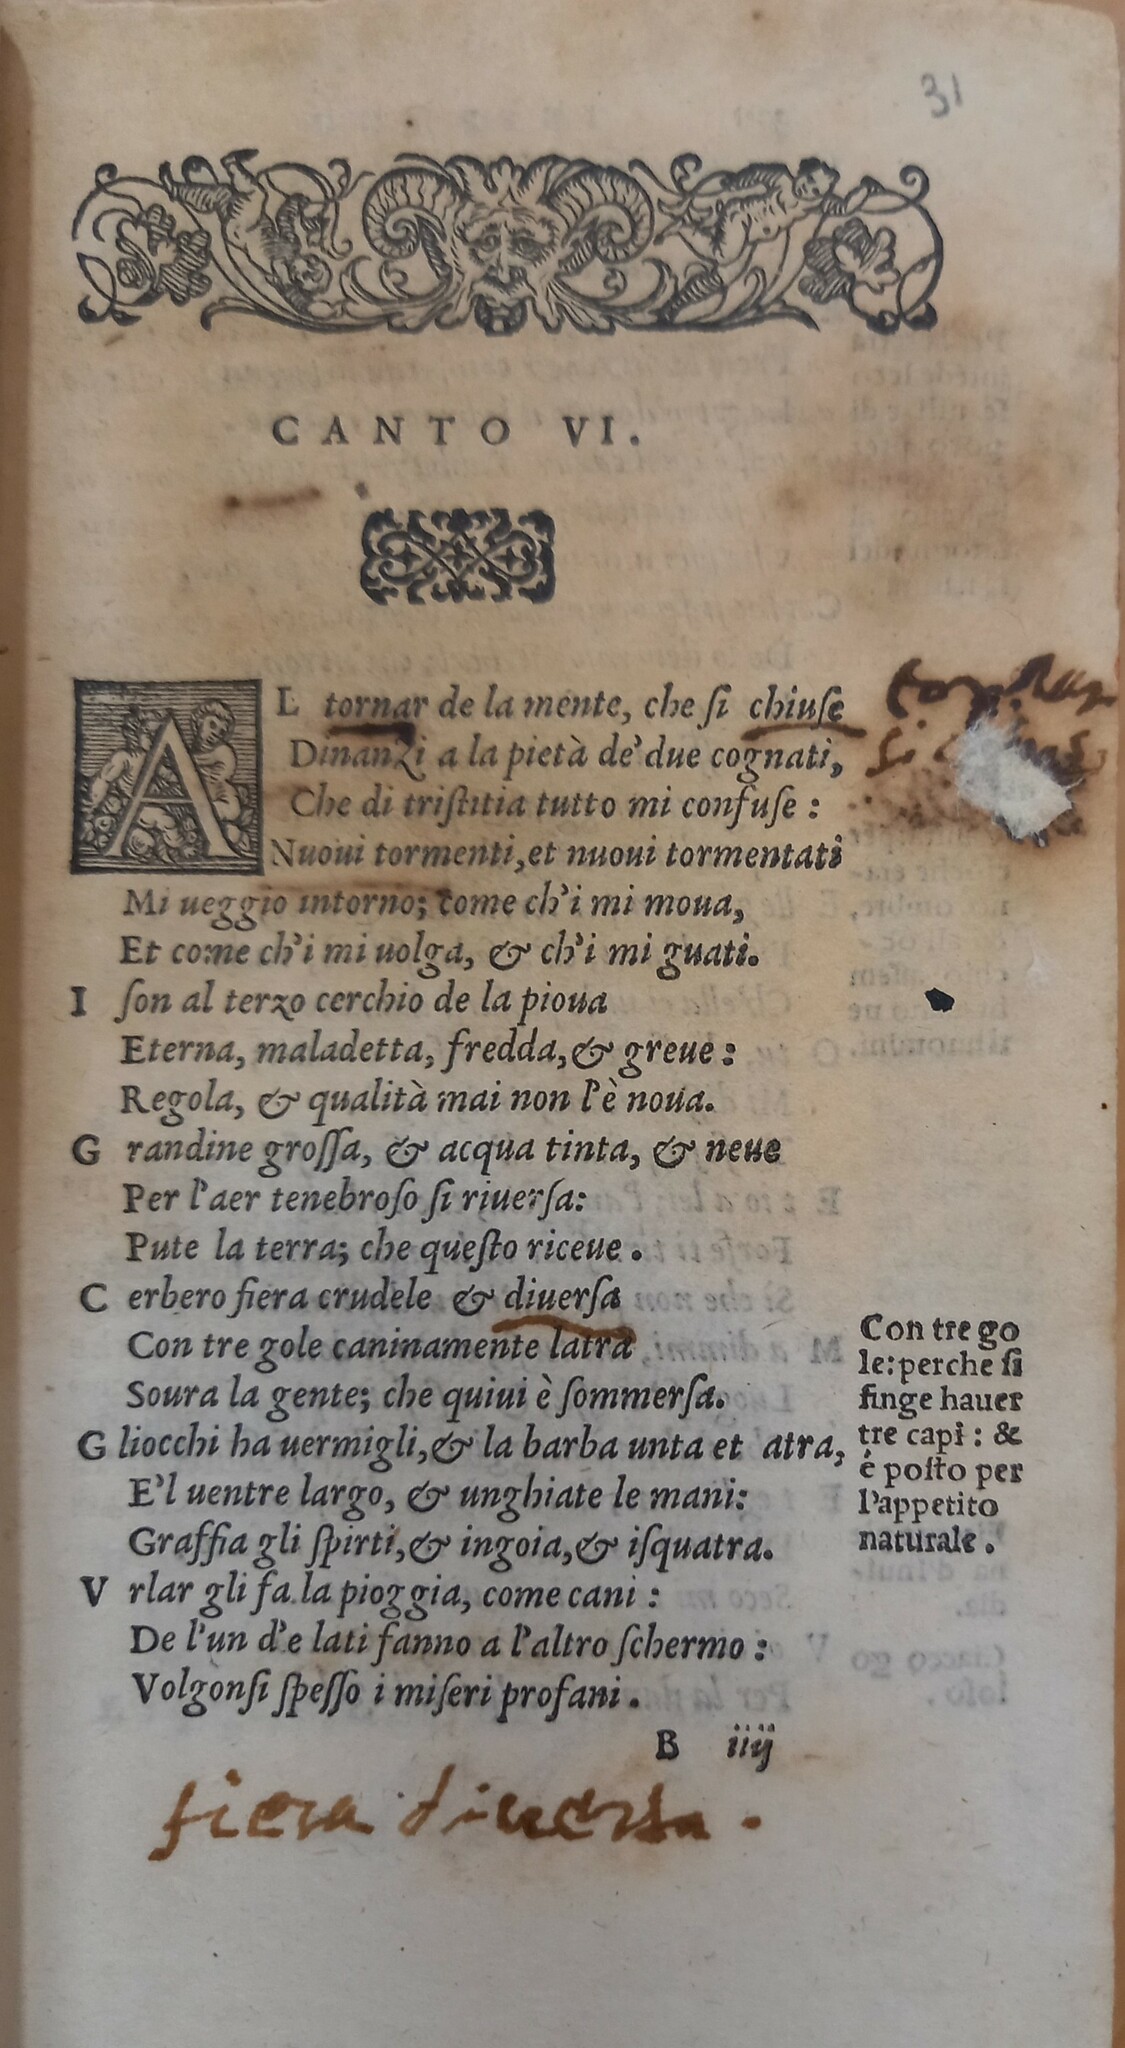 31
CANTO VI.
AL tornar de la mente, che ſi chiuſe
Dinanzi a la pietà de' due cognati,
Che di triſtitia tutto mi confuſe:
Nuoui tormenti, et nuoui tormentati
Mi ueggio intorno; come ch'i mi moua,
Et come ch'i mi uolga, & ch'i mi guati.
I ſon al terzo cerchio de la pioua
Eterna, maladetta, fredda, & greue:
Regola, & qualità mai non l'è noua.
Grandine groſſa, & acqua tinta, & neue
Per l'aer tenebroſo ſi riuerſa:
Pute la terra; che queſto riceue.
Cerbero fiera crudele & diuerſa
Con tre gole caninamente latra
Soura la gente; che quiui è ſommerſa.
Gliocchi ha uermigli, & la barba unta et atra,
E'l uentre largo, & unghiate le mani:
Graffia gli ſpirti, & ingoia, & iſquatra.
Vrlar gli fa la pioggia, come cani:
De l'un d'e lati fanno a l'altro ſchermo:
Volgonſi ſpeſſo i miſeri profani.
B iiij
Con tre go
le: perche ſi
finge hauer
tre capi: &
è poſto per
l'appetito
naturale.
fiera diuersa.